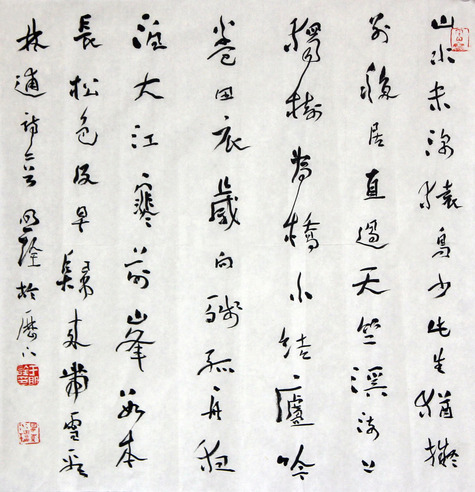 山水未深猿鳥少此生猶擬
别移居直過天竺溪流上
獨樹為橋小結廬吟
卷田衣歲向殘孤舟夜
泊大江寒前峯数本
長松色及早歸來帶雪看
林逋詩二首 明詮於歷下